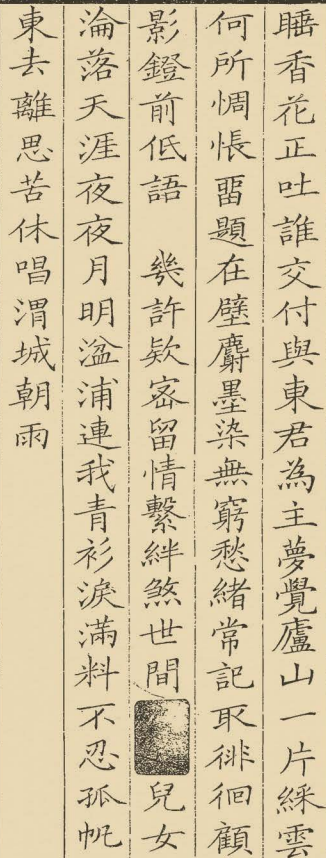 睡香花正吐誰交付與東君為主夢覺廬山一片綵雲
何所惆悵畱題在壁麝墨染無窮愁緒常記取徘徊顧
影鐙前低語　幾許欵宻留情繫絆煞世間兒女
淪落天涯夜夜月明湓浦連我青衫淚滿料不忍孤帆
東去離思苦休唱渭城朝雨